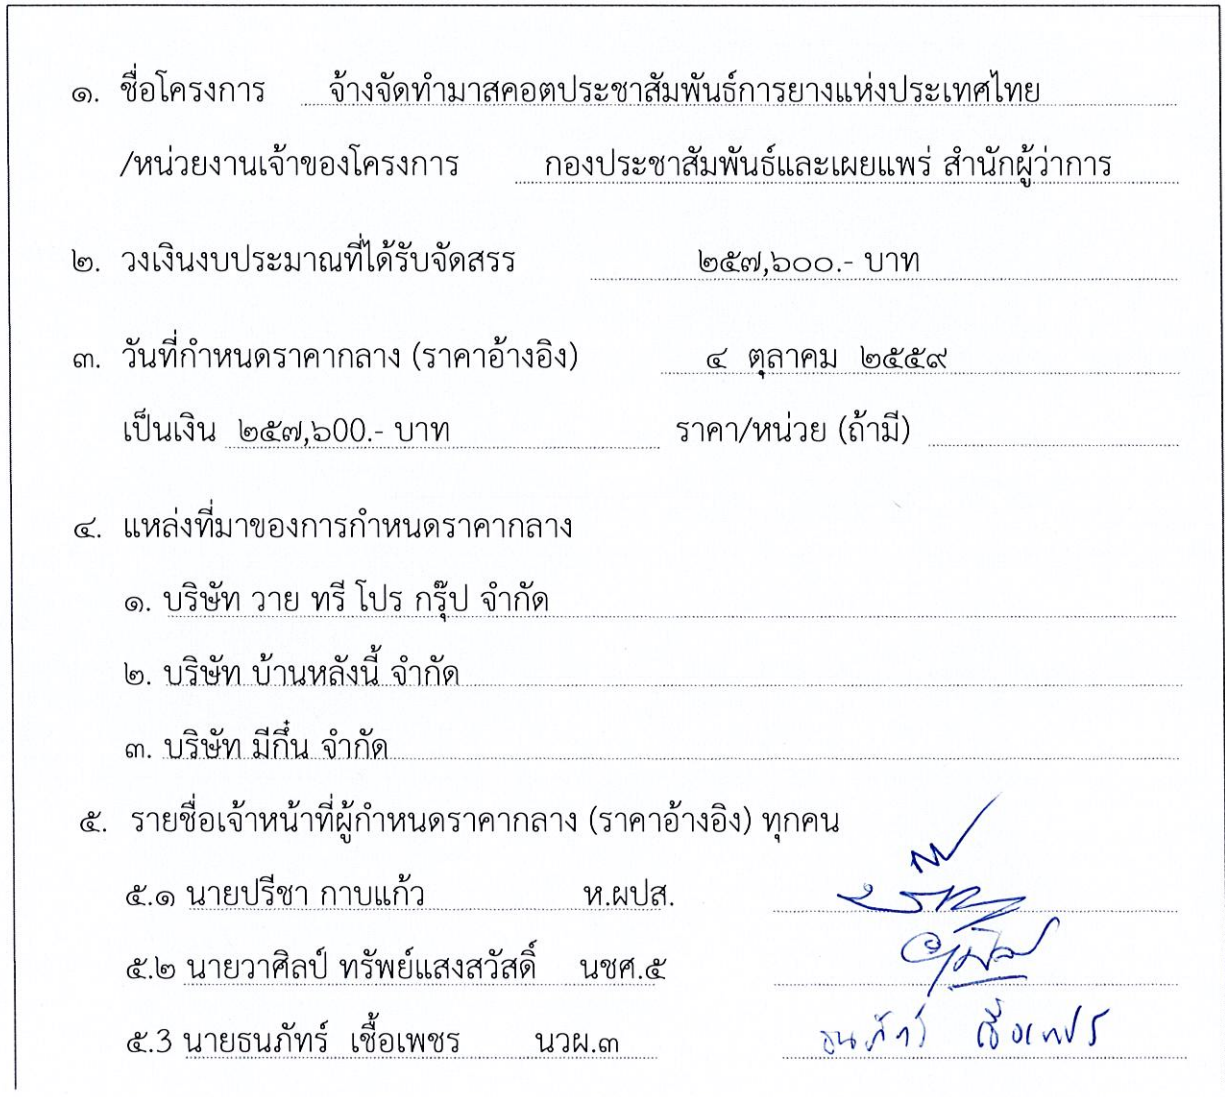 ๑. ชื่อโครงการ จ้างจัดทำมาสคอตประชาสัมพันธ์การยางแห่งประเทศไทย
/หน่วยงานเจ้าของโครงการ กองประชาสัมพันธ์และเผยแพร่ สำนักผู้ว่าการ
๒. วงเงินงบประมาณที่ได้รับจัดสรร ๒๕๗,๖๐๐.- บาท
๓. วันที่กำหนดราคากลาง (ราคาอ้างอิง) ๔ ตุลาคม ๒๕๕๙
เป็นเงิน ๒๕๗,๖00.- บาท ราคา/หน่วย (ถ้ามี)
๔. แหล่งที่มาของการกำหนดราคากลาง
๑. บริษัท วาย ทรี โปร กรุ๊ป จำกัด
๒. บริษัท บ้านหลังนี้ จำกัด
๓. บริษัท มีกึ๋น จำกัด
๕. รายชื่อเจ้าหน้าที่ผู้กำหนดราคากลาง (ราคาอ้างอิง) ทุกคน
๕.๑ นายปรีชา กาบแก้ว ห.ผปส.
๕.๒ นายวาศิลป์ ทรัพย์แสงสวัสดิ์ นชศ.๕
๕.3 นายธนภัทร์ เชื้อเพชร นวผ.๓ ธนภัทร์ เชื้อเพชร